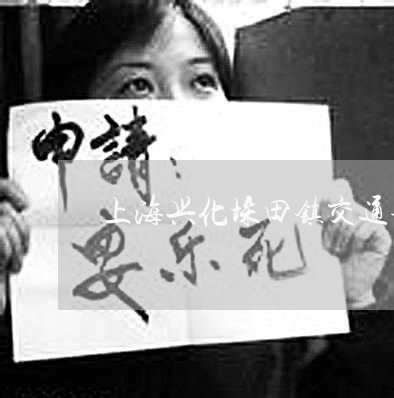 申請：
上海兴化垛田鎮交通
安乐死